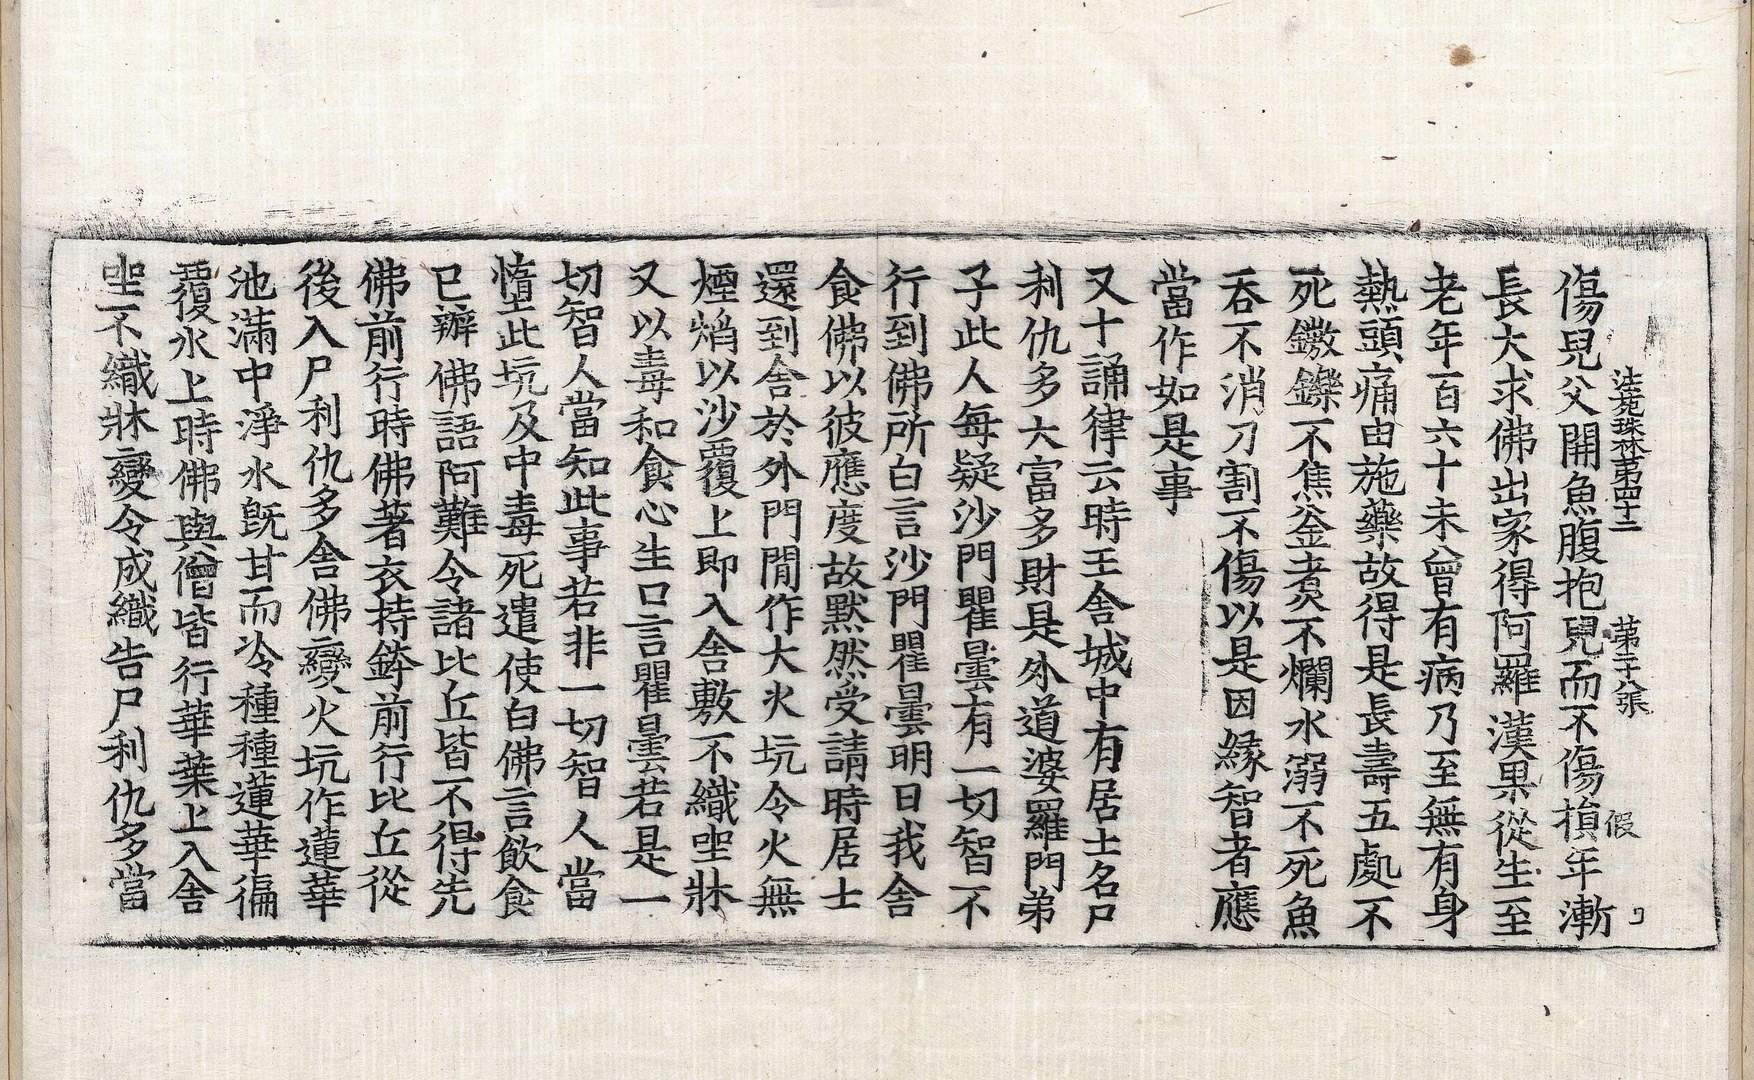 法苑珠林第四十二 第二十八張 假
傷兒父開魚腹抱兒而不傷損年漸
長大求佛出家得阿羅漢果從生至
老年一百六十未曾有病乃至無有身
熱頭痛由施藥故得是長壽五處不
死鏾鑠不焦釜煮不爛水溺不死魚
吞不消刀割不傷以是因緣智者應
當作如是事
又十誦律云時王舍城中有居士名尸
利仇多大富多財是外道婆羅門弟
子此人每疑沙門瞿曇有一切智不
行到佛所白言沙門瞿曇明日我舍
食佛以彼應度故默然受請時居士
還到舍於外門閒作大火坑令火無
煙焰以沙覆上即入舍敷不織坐牀
又以毒和食心生口言瞿曇若是一
切智人當知此事若非一切智人當
墮此坑及中毒死遣使白佛言飲食
已辦佛語阿難令諸比丘皆不得先
佛前行時佛著衣持鉢前行比丘從
後入尸利仇多舍佛變火坑作蓮華
池滿中淨水旣甘而冷種種蓮華徧
覆水上時佛與僧皆行華葉上入舍
坐不織牀變令成織告尸利仇多當